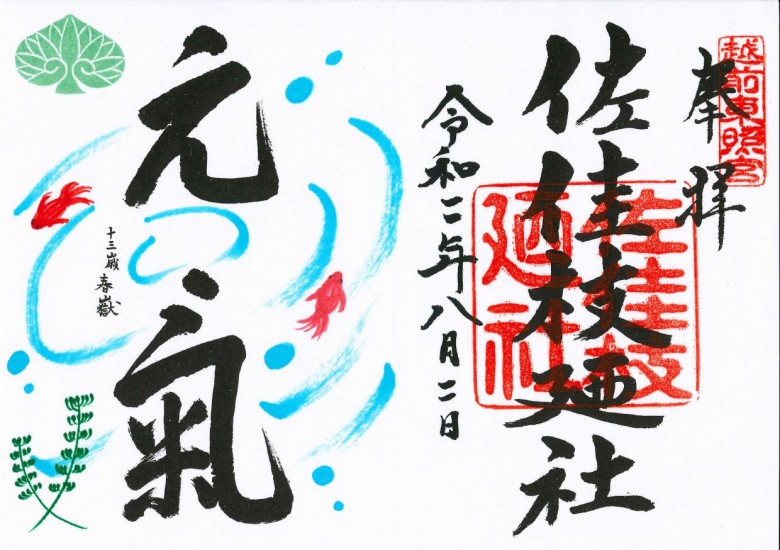 越前東照宮
奉拝
佐佳枝廼社
佐佳枝廼社
令和二年八月二日
元氣
十三歳 春嶽